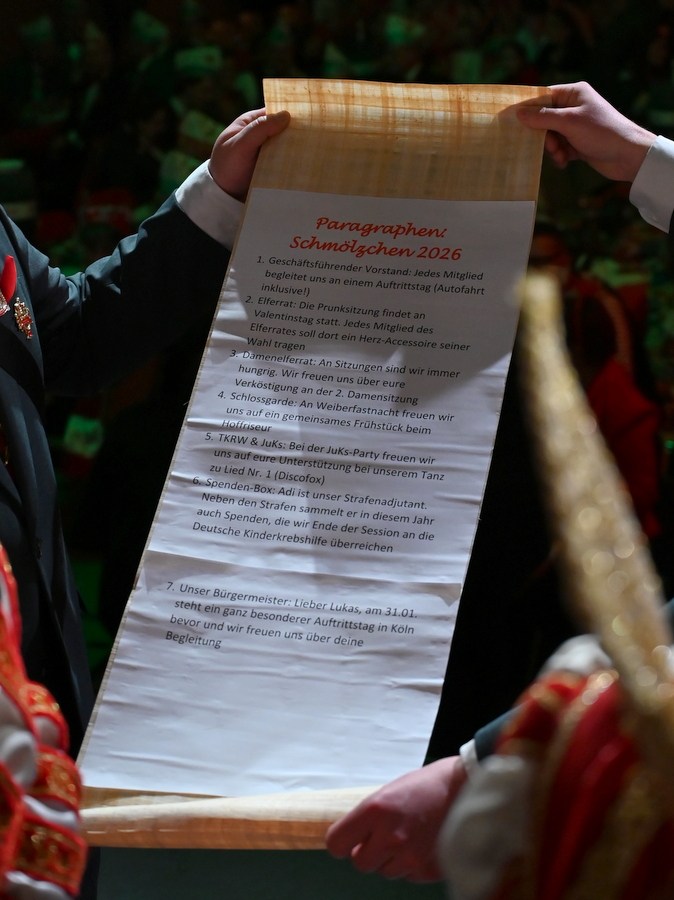 Paragraphen:
Schmölzchen 2026
1. Geschäftsführender Vorstand: Jedes Mitglied
begleitet uns an einem Auftrittstag (Autofahrt
inklusive!)
2. Elferrat: Die Prunksitzung findet an
Valentinstag statt. Jedes Mitglied des
Elferrates soll dort ein Herz-Accessoire seiner
Wahl tragen
3. Damenelferrat: An Sitzungen sind wir immer
hungrig. Wir freuen uns über eure
Verköstigung an der 2. Damensitzung
4. Schlossgarde: An Weiberfastnacht freuen wir
uns auf ein gemeinsames Frühstück beim
Hoffriseur
5. TKRW & JuKs: Bei der JuKs-Party freuen wir
uns auf eure Unterstützung bei unserem Tanz
zu Lied Nr. 1 (Discofox)
6. Spenden-Box: Adi ist unser Strafenadjutant.
Neben den Strafen sammelt er in diesem Jahr
auch Spenden, die wir Ende der Session an die
Deutsche Kinderkrebshilfe überreichen
7. Unser Bürgermeister: Lieber Lukas, am 31.01.
steht ein ganz besonderer Auftrittstag in Köln
bevor und wir freuen uns über deine
Begleitung